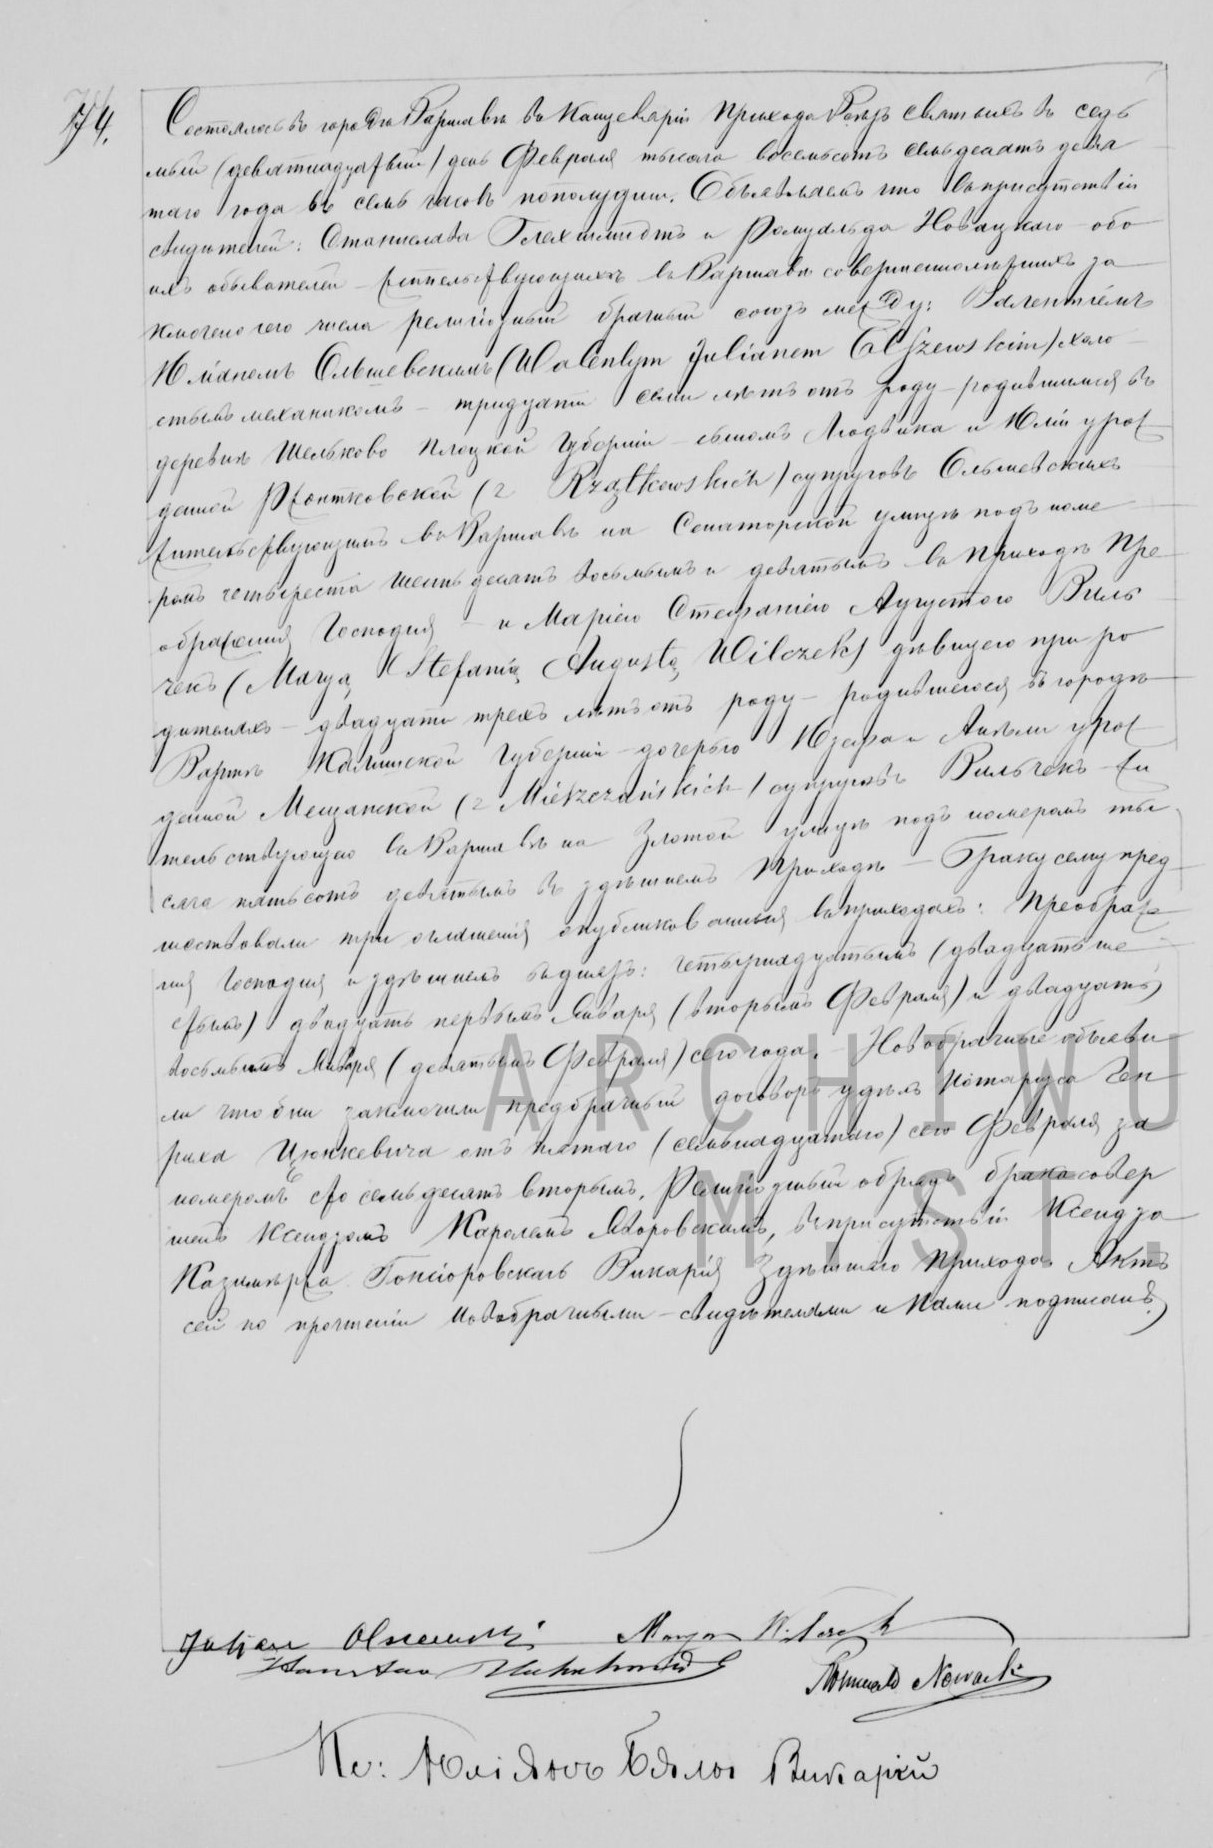 74.
Состоялось въ городѣ Варшавѣ въ Канцеляріи Прихода Всѣхъ Святыхъ въ седь
мый (девятнадцатый) день Февраля тысяча восемьсотъ семьдесятъ девя
таго года въ семь часовъ пополудни. Объявляемъ что въ присутствіи
свидѣтелей: Станислава и Ромуальда Новацкаго обо
ихъ обывателей жительствующихъ въ Варшавѣ совершеннолѣтнихъ за
ключено сего числа религіозный брачный союзъ между: Валентіемъ
Юліаномъ Ольшевскимъ (Walentym Julianem Olszewskim) холо
стымъ механикомъ – тридцати семи лѣтъ отъ роду – родившимся въ
деревнѣ Шельково Плоцкой Губерніи – сыномъ Людвика и Юліи урож
денной Ржонтковской (z Rzątkowskich) супруговъ Ольшевскихъ
жительствующимъ въ Варшавѣ на Сенаторской улицѣ подъ номе
ромъ четыреста шестьдесятъ восьмымъ и девятымъ въ Приходѣ Пре
ображенія Господня – и Маріею Стефаніею Августою Виль
чекъ (Maryą Stefanią Augustą Wilczek) дѣвицею при ро
дителяхъ – двадцати трехъ лѣтъ отъ роду – родившеюся въ городѣ
Вартѣ Калишской Губерніи – дочерью Юзефа и Анѣли урож
денной Мещанской (z Mieszczańskich) супруговъ Вильчекъ – жи
тельствующею въ Варшавѣ на Златой улицѣ подъ номеромъ ты
сяча пятьсотъ девятымъ въ здѣшнемъ Приходѣ – Браку сему пред
шествовали три оглашенія опубликованныя въ приходахъ: Преображе
нія Господня и здѣшнемъ въ дняхъ: четырнадцатымъ (двадцать ше
стымъ) двадцать первымъ Января (вторымъ Февраля) и двадцать
восьмымъ Января (девятымъ Февраля) сего года. – Новобрачные объяви
ли что они заключили предбрачный договоръ у дѣлъ Нотаріуса Ген
риха отъ пятаго (семьнадцатаго) сего Февраля за
номеромъ сто семьдесятъ вторымъ. Религіозный обрядъ брака совер
шенъ Ксендзомъ Каролемъ Яворовскимъ, въ присутствіи Ксендза
Казимѣржа Гонсіоровскаго Викарія Здѣшняго Прихода Актъ
сей по прочтеніи Новобрачными – свидѣтелями и Нами подписанъ
ARCHIWU
M.ST.
Julian Olszewski Marya Wilczek
Stanisław
Romuald Nowacki
Кс: Юліанъ Бялы Викарій